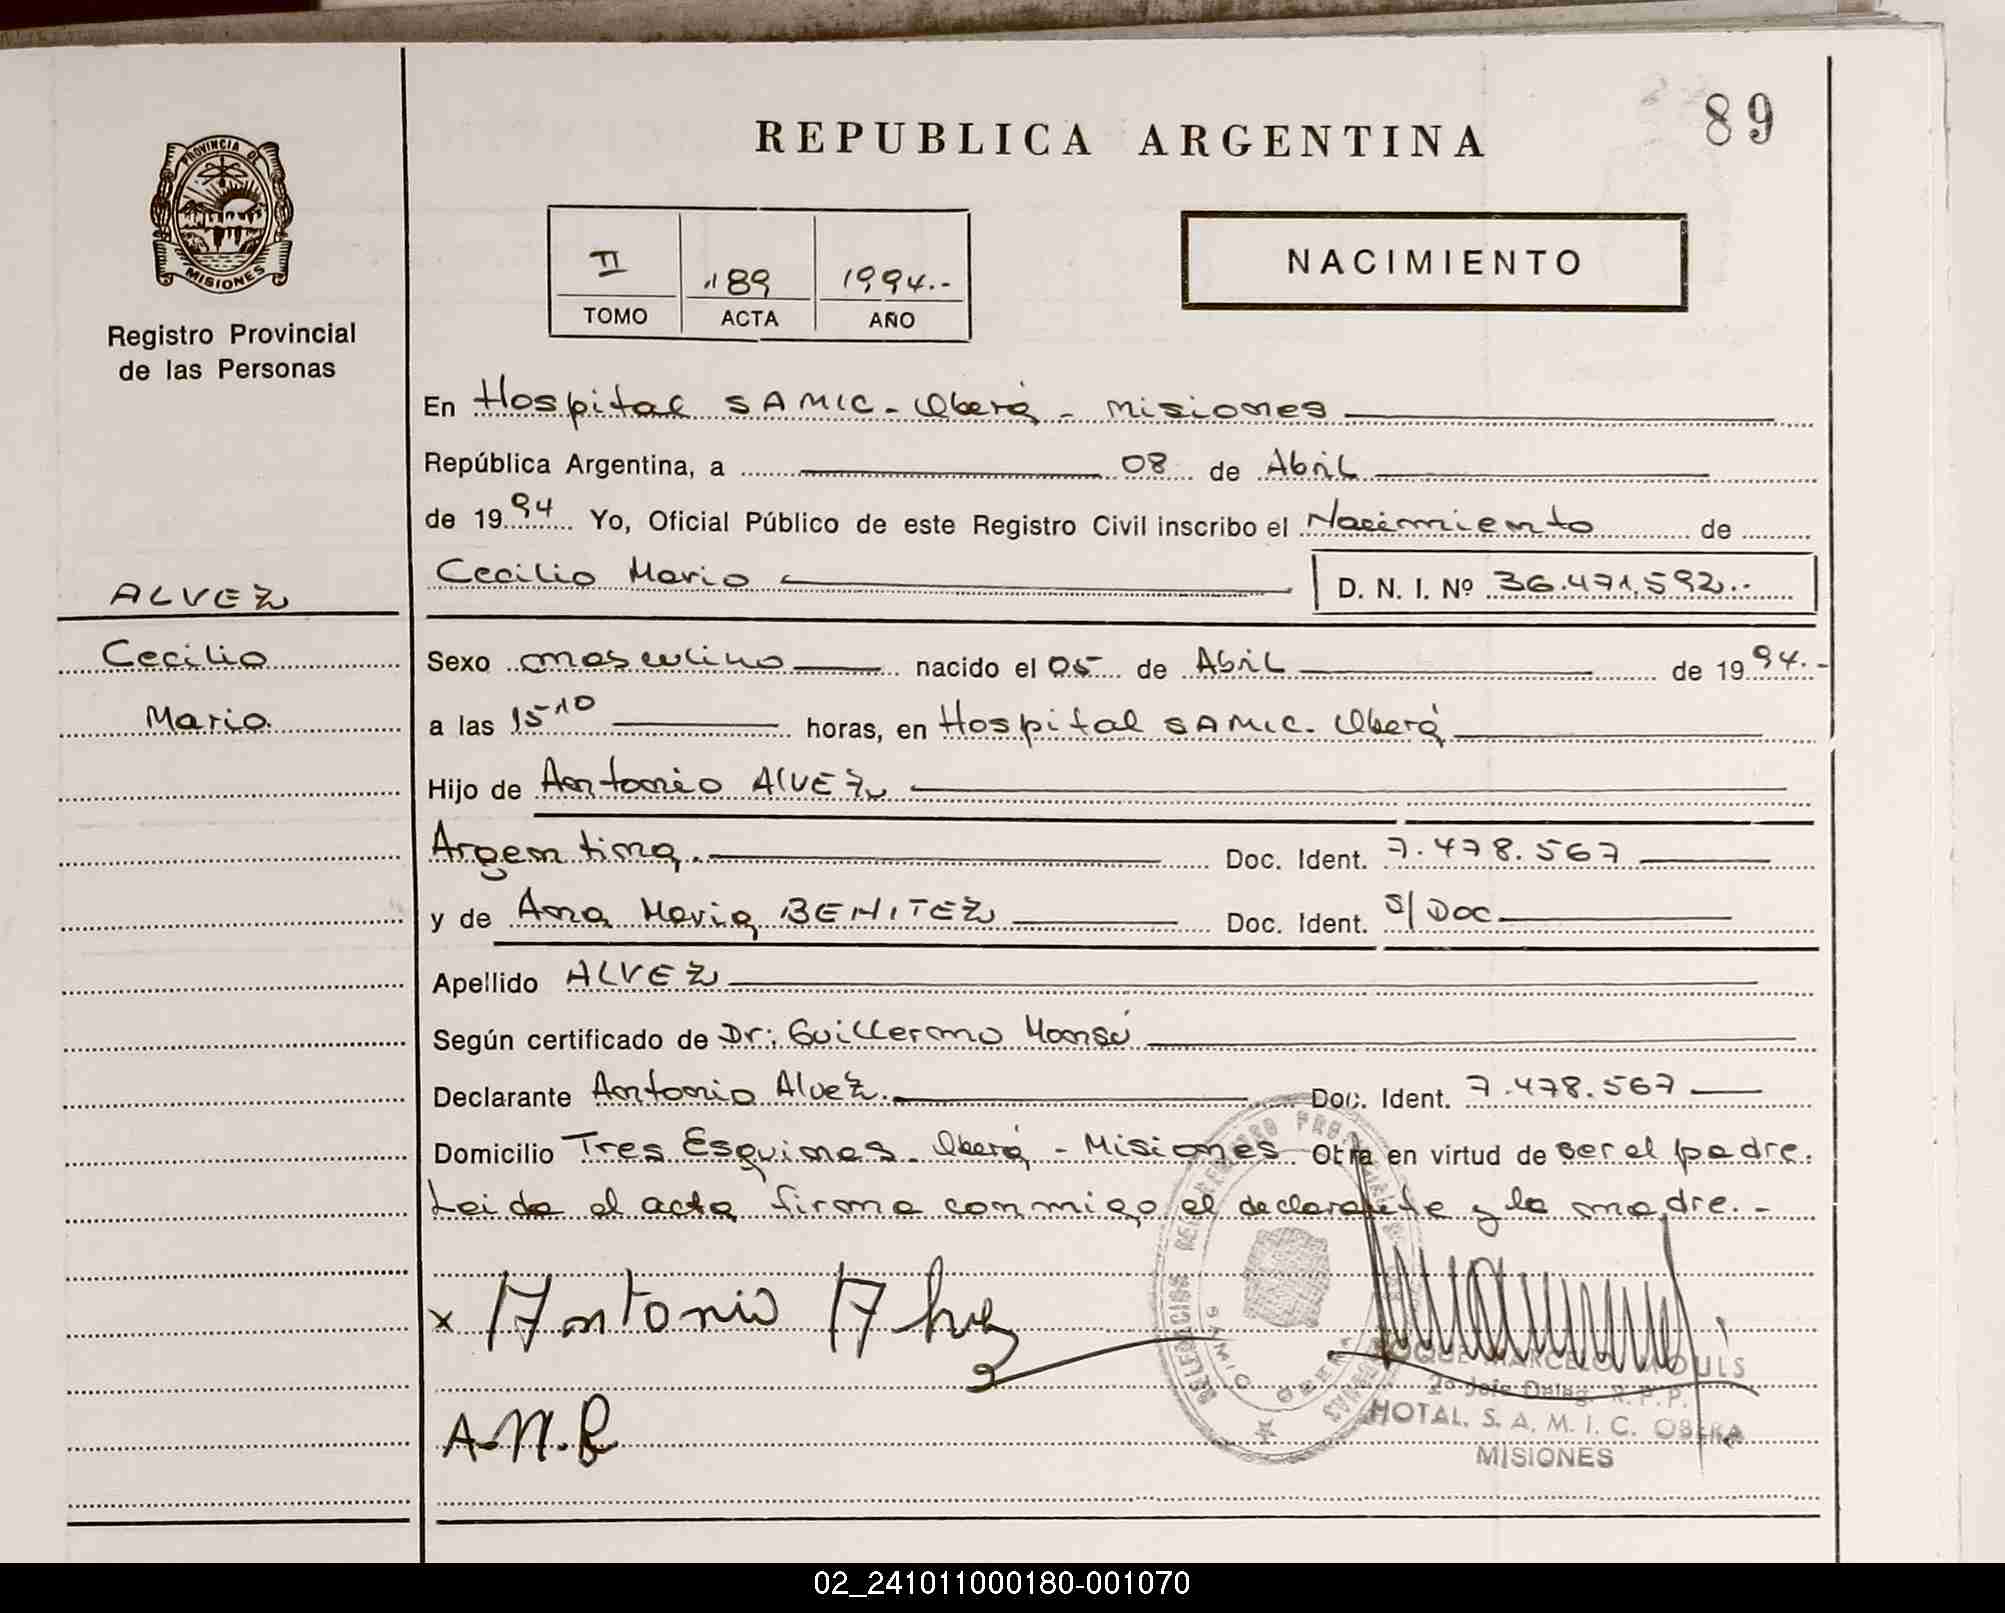 89
REPUBLICA ARGENTINA
PROVINCIA DE
MISIONES
Registro Provincial
de las Personas
II 189 1994.-
TOMO ACTA AÑO
NACIMIENTO
En Hospital SAMIC - Oberá - Misiones
República Argentina, a 08 de Abril
de 1994 Yo, Oficial Público de este Registro Civil inscribo el Nacimiento de
Cecilio Mario D. N. I. Nº 36.471.592.-
ALVEZ
Cecilio
Mario
Sexo masculino nacido el 05 de Abril de 1994.-
a las 15 10 horas, en Hospital SAMIC. Oberá
Hijo de Antonio ALVEZ
Argentina. Doc. Ident. 7.478.567
y de Ana Maria BENITEZ Doc. Ident. S/DOC
Apellido ALVEZ
Según certificado de Dr: Guillermo Monsú
Declarante Antonio Alvez. Doc. Ident. 7.478.567
Domicilio Tres Esquinas. Oberá - Misiones Otra en virtud de ser el padre.
Leida el acta firma conmigo el declarante y la madre. -
x Antonio Alvez
A.M.B
ROQUE MARCELO
2º Jefe Deleg. R.P.P.
HOTAL. S. A. M. I. C. OBERA
MISIONES
02_241011000180-001070